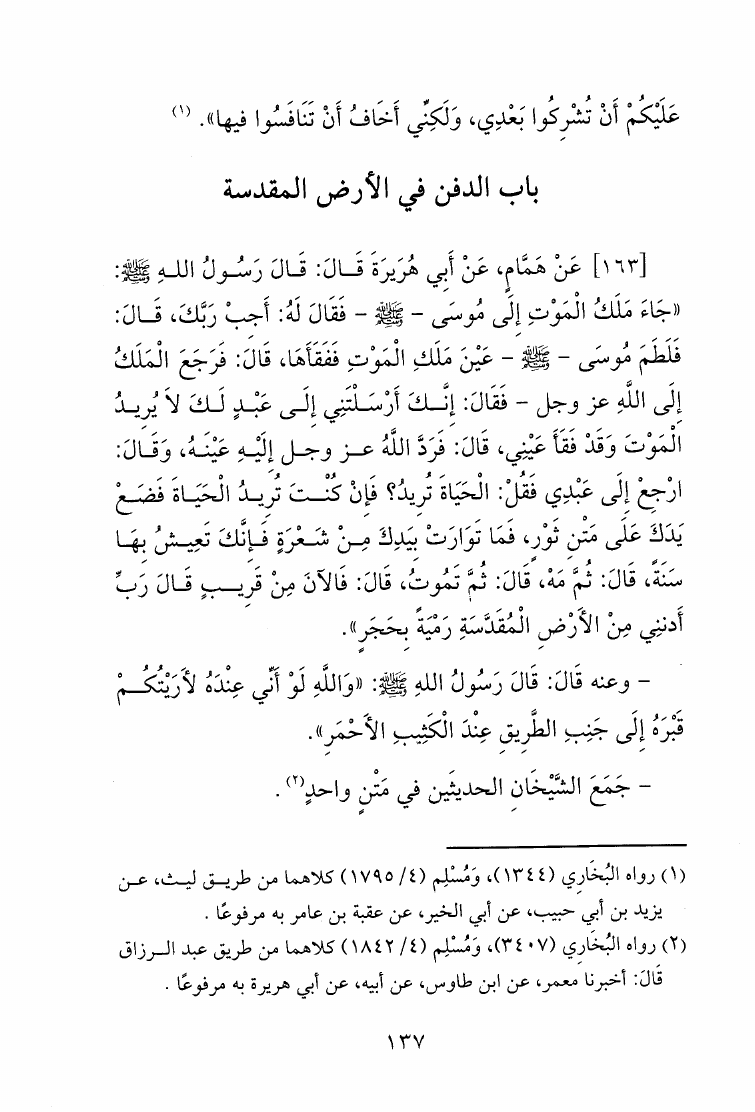 عَلَيْكُمْ أَنْ تُشْرِكُوا بَعْدِي، وَلَكِنِّي أَخَافُ أَنْ تَنَافَسُوا فيها». (١)
باب الدفن في الأرض المقدسة
[١٦٣] عَنْ هَمَّامٍ، عَنْ أَبِي هُرَيرَةَ قَـالَ: قَـالَ رَسُـولُ اللـهِ ﷺ:
«جَاءَ مَلَكُ الْمَوْتِ إِلَى مُوسَى - ﷺ - فَقَالَ لَهُ: أَجِبْ رَبَّكَ، قَـالَ:
فَلَطَمَ مُوسَى - ﷺ - عَيْنَ مَلَكِ الْمَوْتِ فَفَقَأَهَا، قَالَ: فَرَجَعَ الْمَلَكُ
إِلَى اللَّهِ عز وجل - فَقَالَ: إِنَّـكَ أَرْسَـلْتَنِي إِلَـى عَبْـدٍ لَـكَ لاَ يُرِيـدُ
الْمَوْتَ وَقَدْ فَقَأَ عَيْنِي، قَالَ: فَرَدَّ اللَّهُ عـز وجـل إِلَيْـهِ عَيْنَـهُ، وَقَـالَ:
ارْجِعْ إِلَى عَبْدِي فَقُلْ: الْحَيَاةَ تُرِيدُ؟ فَإِنْ كُنْـتَ تُرِيـدُ الْحَيَـاةَ فَضَـعْ
يَدَكَ عَلَى مَتْنِ ثَوْرٍ، فَمَا تَوَارَتْ بِيَدِكَ مِـنْ شَـعْرَةٍ فَـإِنَّكَ تَعِيـشُ بِهَـا
سَنَةً، قَالَ: ثُمَّ مَهْ، قَالَ: ثُمَّ تَمُوتُ، قَالَ: فَالآنَ مِنْ قَرِيـبٍ قَـالَ رَبِّ
أَدنِنِي مِنْ الأَرْضِ الْمُقَدَّسَةِ رَمْيَةً بِحَجَرٍ».
- وعنه قَالَ: قَالَ رَسُولُ اللهِ ﷺ: «وَاللَّهِ لَوْ أَنِّي عِنْدَهُ لأَرَيْتُكُـمْ
قَبْرَهُ إِلَى جَنِبِ الطَّرِيقِ عِنْدَ الْكَثِيبِ الأَحْمَرِ».
- جَمَعَ الشَّيْخَانِ الحديثَين في مَتْنٍ واحدٍ(٢).
(١) رواه البُخَاري (١٣٤٤)، وَمُسْلِم (٤/ ١٧٩٥) كلاهما من طريـق ليـث، عـن
يزيد بن أبي حبيب، عن أبي الخير، عن عقبة بن عامر به مرفوعًا .
(٢) رواه البُخَاري (٣٤٠٧)، وَمُسْلِم (٤/ ١٨٤٢) كلاهما من طريق عبد الـرزاق
قَالَ: أخبرنا معمر، عن ابن طاوس، عن أبيه، عن أبي هريرة به مرفوعًا .
١٣٧